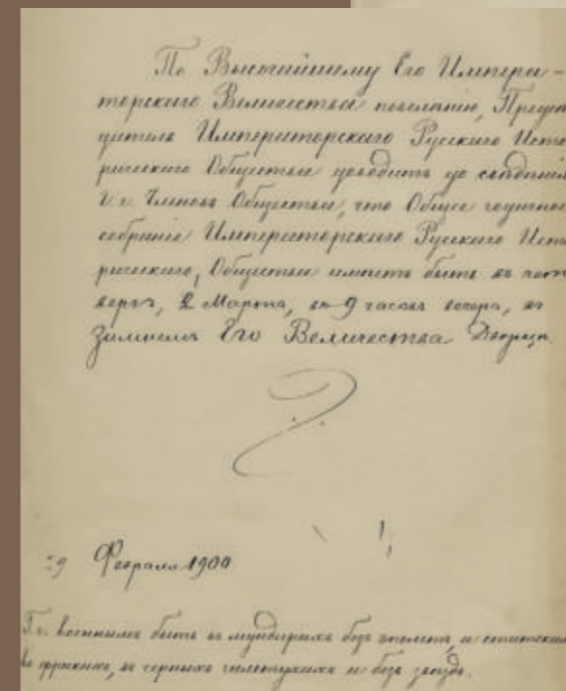 По Высочайшему Его Импера-
торскаго Величества повелѣнію, Предсѣ
датель Императорскаго Русскаго Исто
рическаго Общества доводитъ до свѣдѣнія
Г.г. Членовъ Общества, что Общее годичное
собраніе Императорскаго Русскаго Исто
рическаго Общества имѣетъ быть въ чет
вергъ, 2 Марта, въ 9 часовъ вечера, въ
Зимнемъ Его Величества Дворцѣ.
Февраля 1900
Г.г. военнымъ быть въ мундирахъ безъ эполетъ, а статским
во фракахъ, въ черныхъ галстукахъ и безъ звѣздъ.